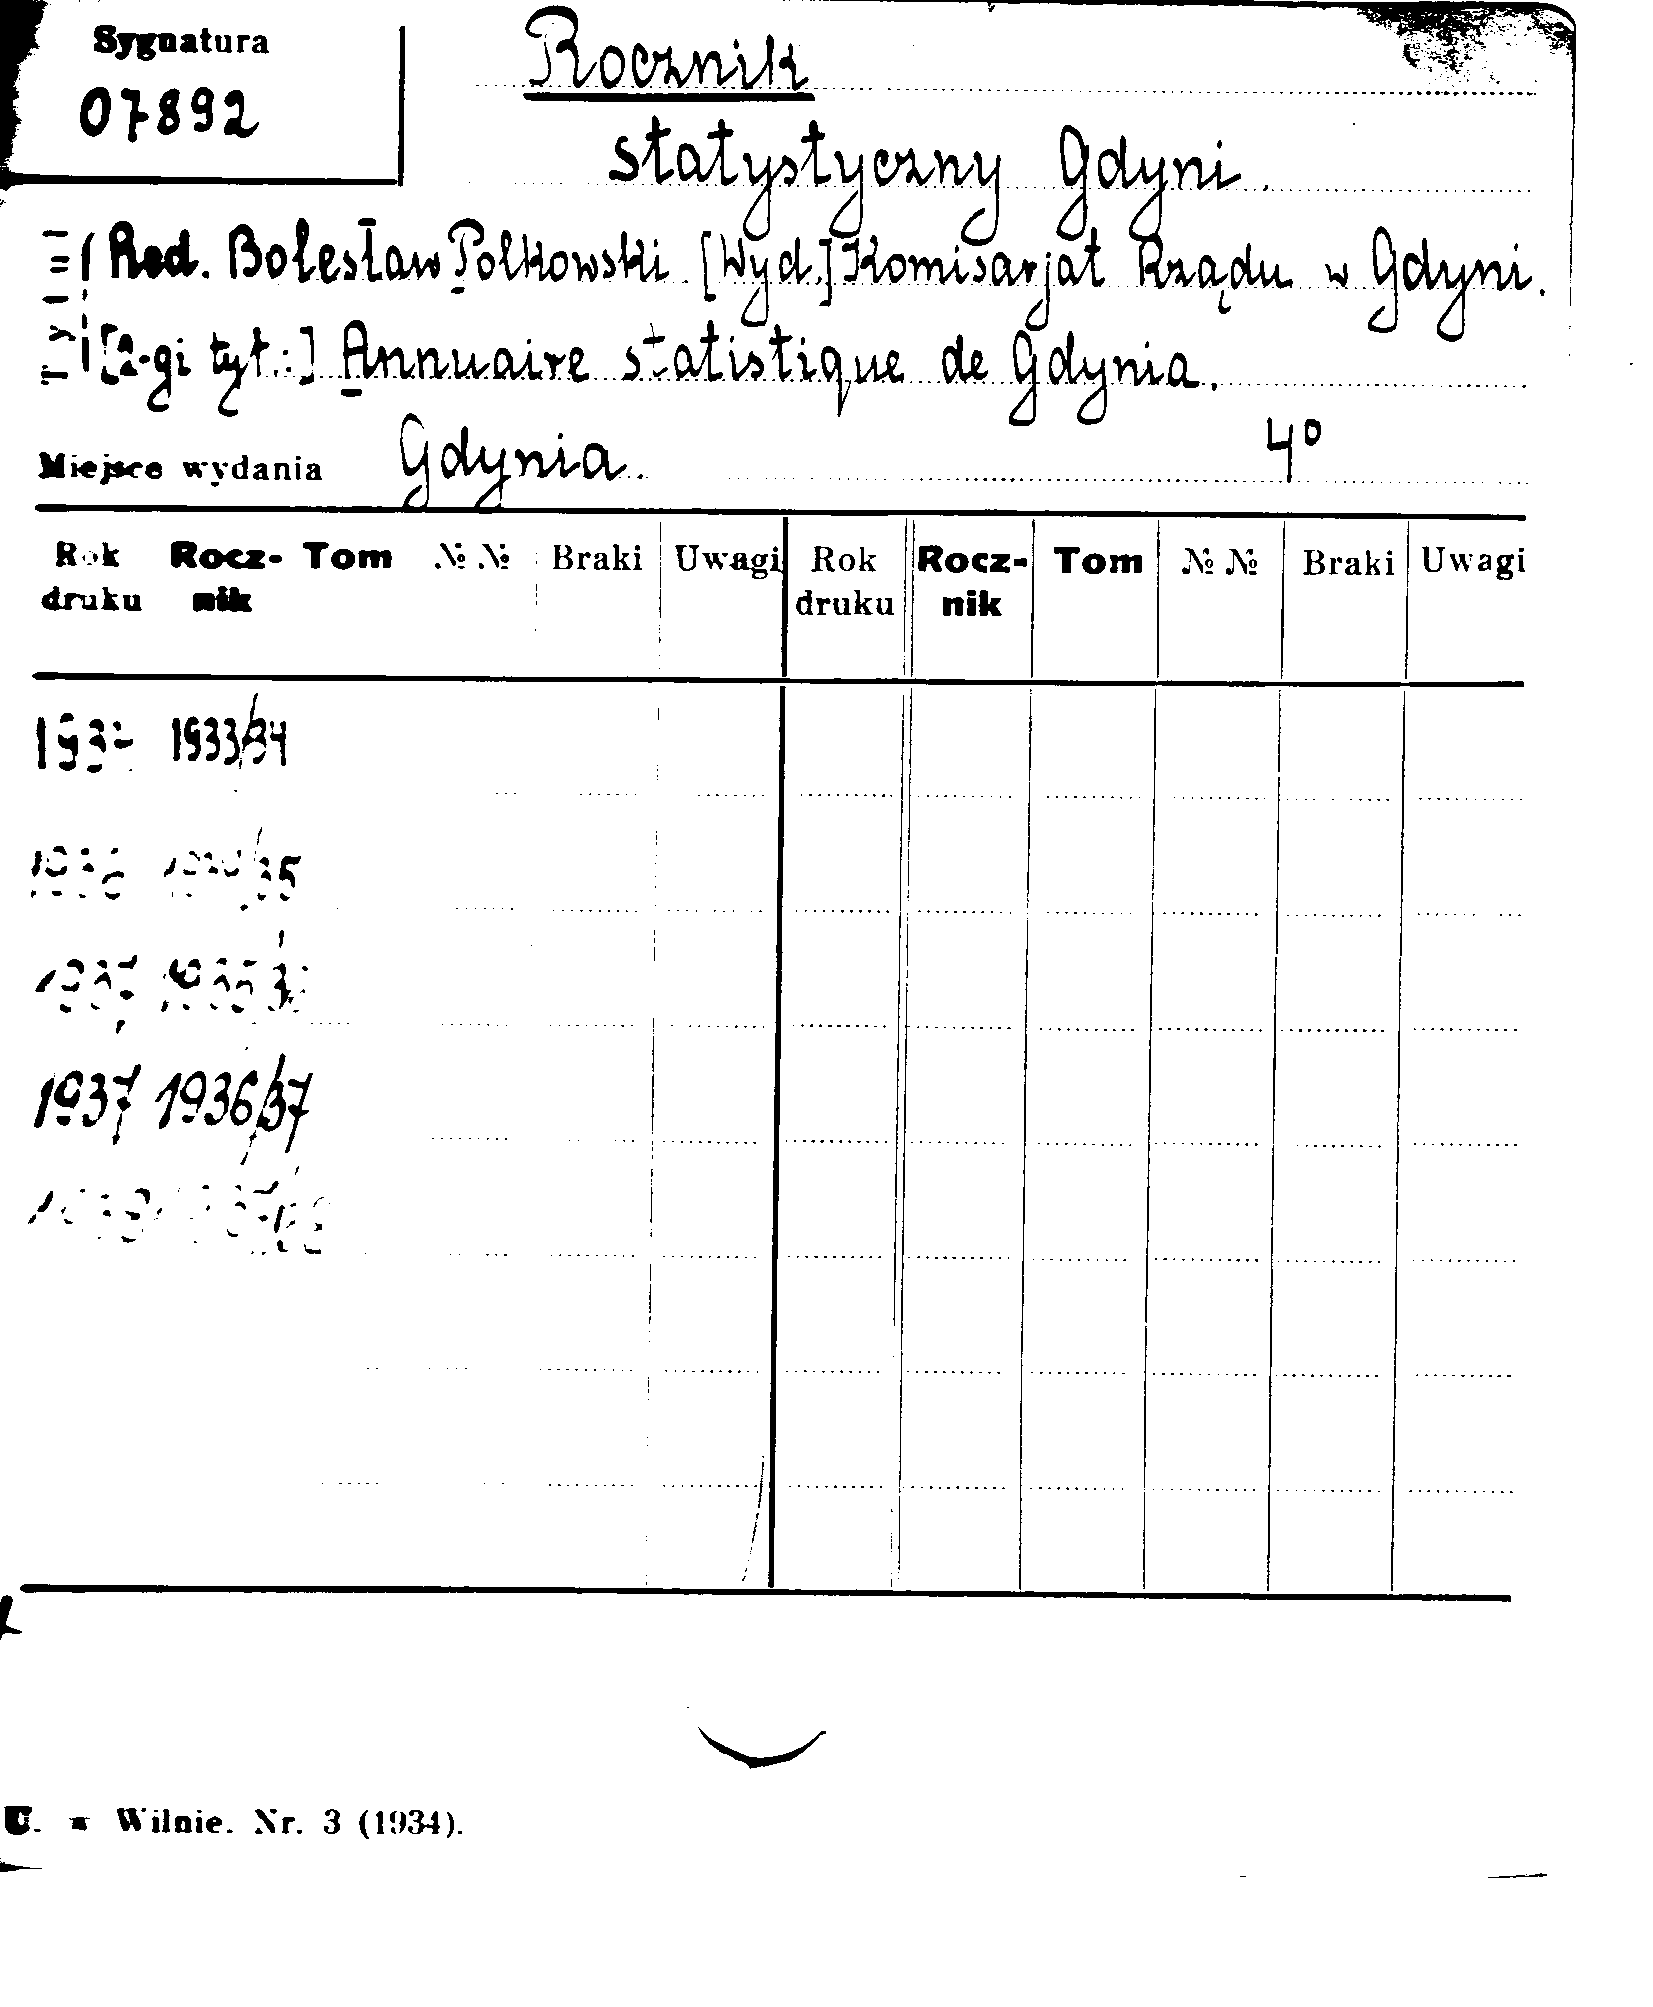 Sygnatura
07892
Rocznik
statystyczny Gdyni.
Red. Bolesław Polkowski. [Wyd.] Komisarjat Rządu w Gdyni.
[2-gi tyt.:] Annuaire statistique de Gdynia.
Miejsce wydania Gdynia. 4°
Rok Rocz- Tom №№ Braki Uwagi Rok Rocz- Tom №№ Braki Uwagi
druku nik druku nik
1933/34
1937 1936/37
U. w Wilnie. Nr. 3 (1934).